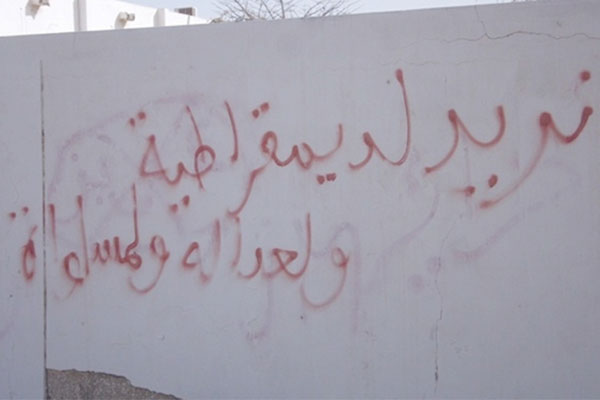 نريد لديمقراطية
ولعداله ولمساواة